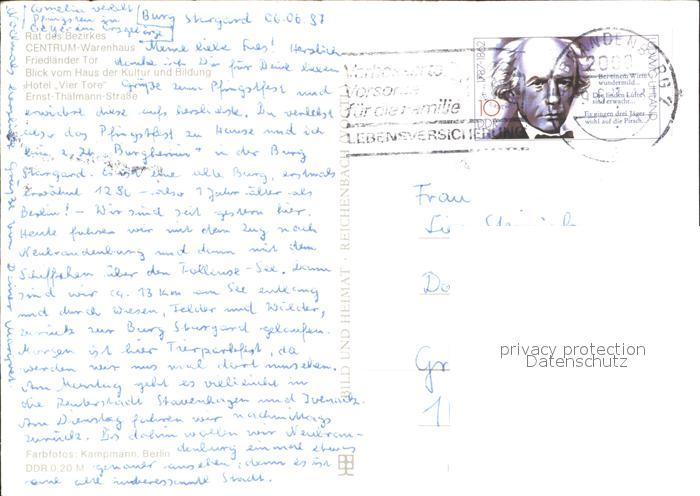 Burg Stargard 06.06.87
Cornelia verlebt
Pfingsten in
Rat des Bezirkes
CENTRUM-Warenhaus
Friedländer Tor
Blick vom Haus der Kultur und Bildung
Hotel „Vier Tore"
Ernst-Thälmann-Straße
Meine liebe Herzlich
danke ich Dir für Deine lieben
Grüße zum Pfingstfest und
erwidre diese aufs herzlichste. Du verlebst
also das Pfingstfest zu Hause und ich
bin z. Zt. "Burgherrin" in der Burg
Stargard. Es ist eine alte Burg, erstmals
erwähnt 1236 – also 1 Jahr älter als
Berlin! – Wir sind seit gestern hier.
Heute fuhren wir mit dem Zug nach
Neubrandenburg und dann mit dem
Schiffchen über den Tollense-See, dann
sind wir ca. 13 km am See entlang
und durch Wiesen, Felder und Wälder,
zurück zur Burg Stargard gelaufen.
Morgen ist hier Tierparkfest, da
werden wir uns mal dort umsehen.
Am Montag geht es vielleicht in
die Reuterstadt Stavenhagen und Ivenack.
Am Dienstag fahren wir nachmittags
zurück. Bis dahin wollen wir Neubran-
denburg einmal etwas
genauer ansehen, denn es ist
eine alte interessante Stadt.
Farbfotos: Kampmann, Berlin
DDR 0,20 M
BILD UND HEIMAT · REICHENBACH
Vorsorge
für die Familie
LEBENSVERSICHERUNG
1787–1862
LUDWIG UHLAND
10
DDR
Bei einem Wirte
wundermild...
Die linden Lüfte
sind erwacht...
Es gingen drei Jäger
wohl auf die Pirsch...
BRANDENBURG 2
2000
Frau
privacy protection
Datenschutz